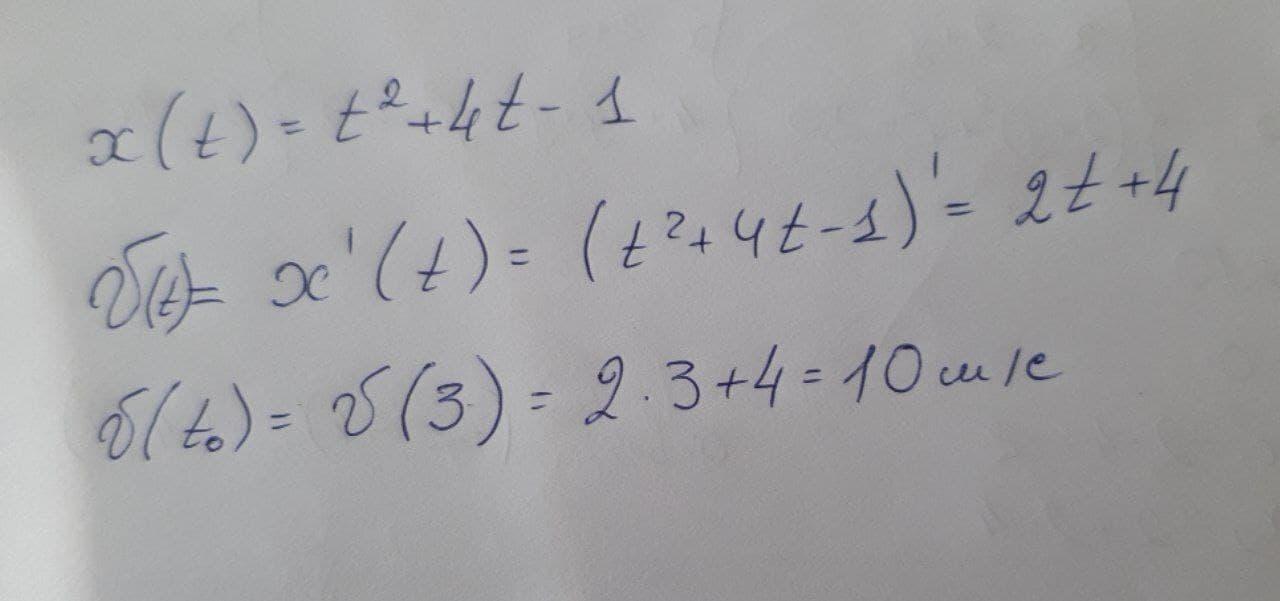 x(t) = t²+4t- 1
v(t)= x'(t) = (t²+4t-1)' = 2t+4
v(t₀) = v(3) = 2·3+4=10м/с